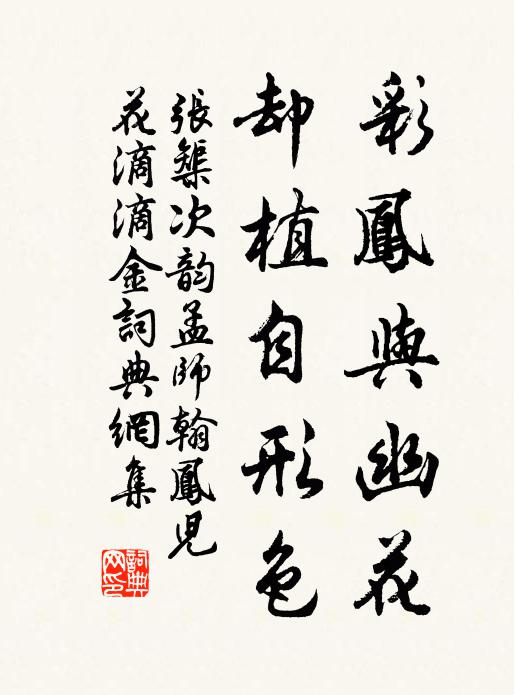 彩鳳與幽花
却植自形色
張榘次韵孟師翰鳳児
花滴滴金詞典網集
詞典
网印